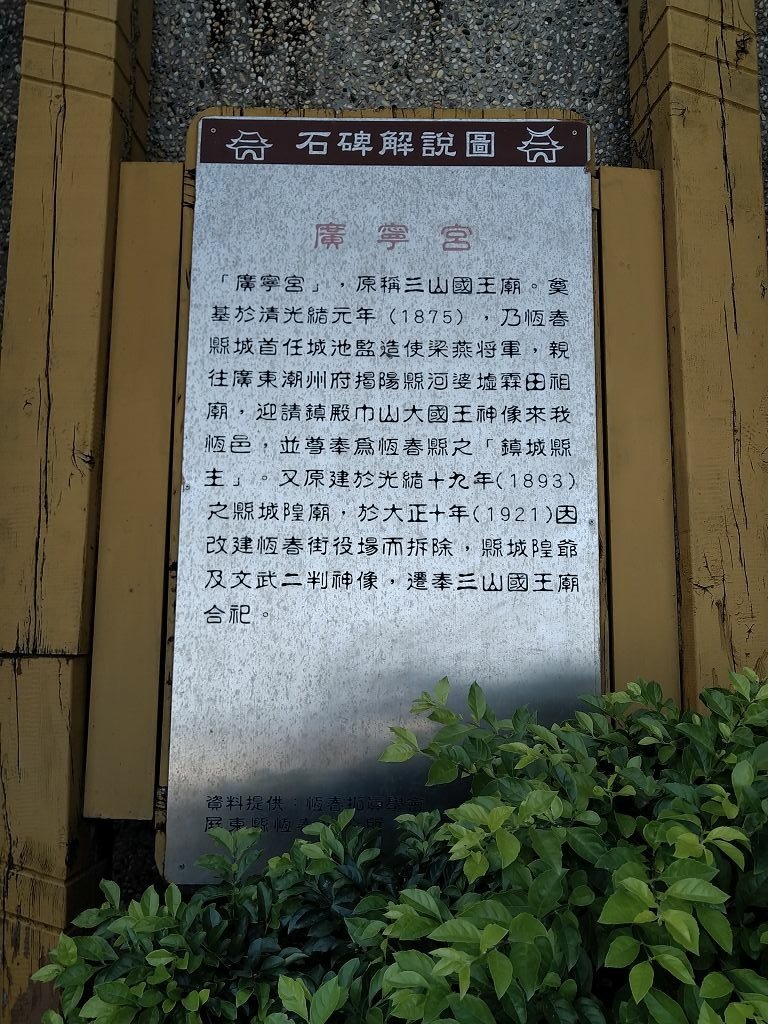 石碑解說圖
廣寧宮
「廣寧宮」，原稱三山國王廟。奠
基於清光緒元年（1875），乃恆春
縣城首任城池監造使梁燕將軍，親
往廣東潮州府揭陽縣河婆墟霖田祖
廟，迎請鎮殿巾山大國王神像來我
恆邑，並尊奉為恆春縣之「鎮城縣
主」。又原建於光緒十九年(1893)
之縣城隍廟，於大正十年(1921)因
改建恆春街役場而拆除，縣城隍爺
及文武二判神像，遷奉三山國王廟
合祀。
資料提供：恆春拓真學會
屏東縣恆春